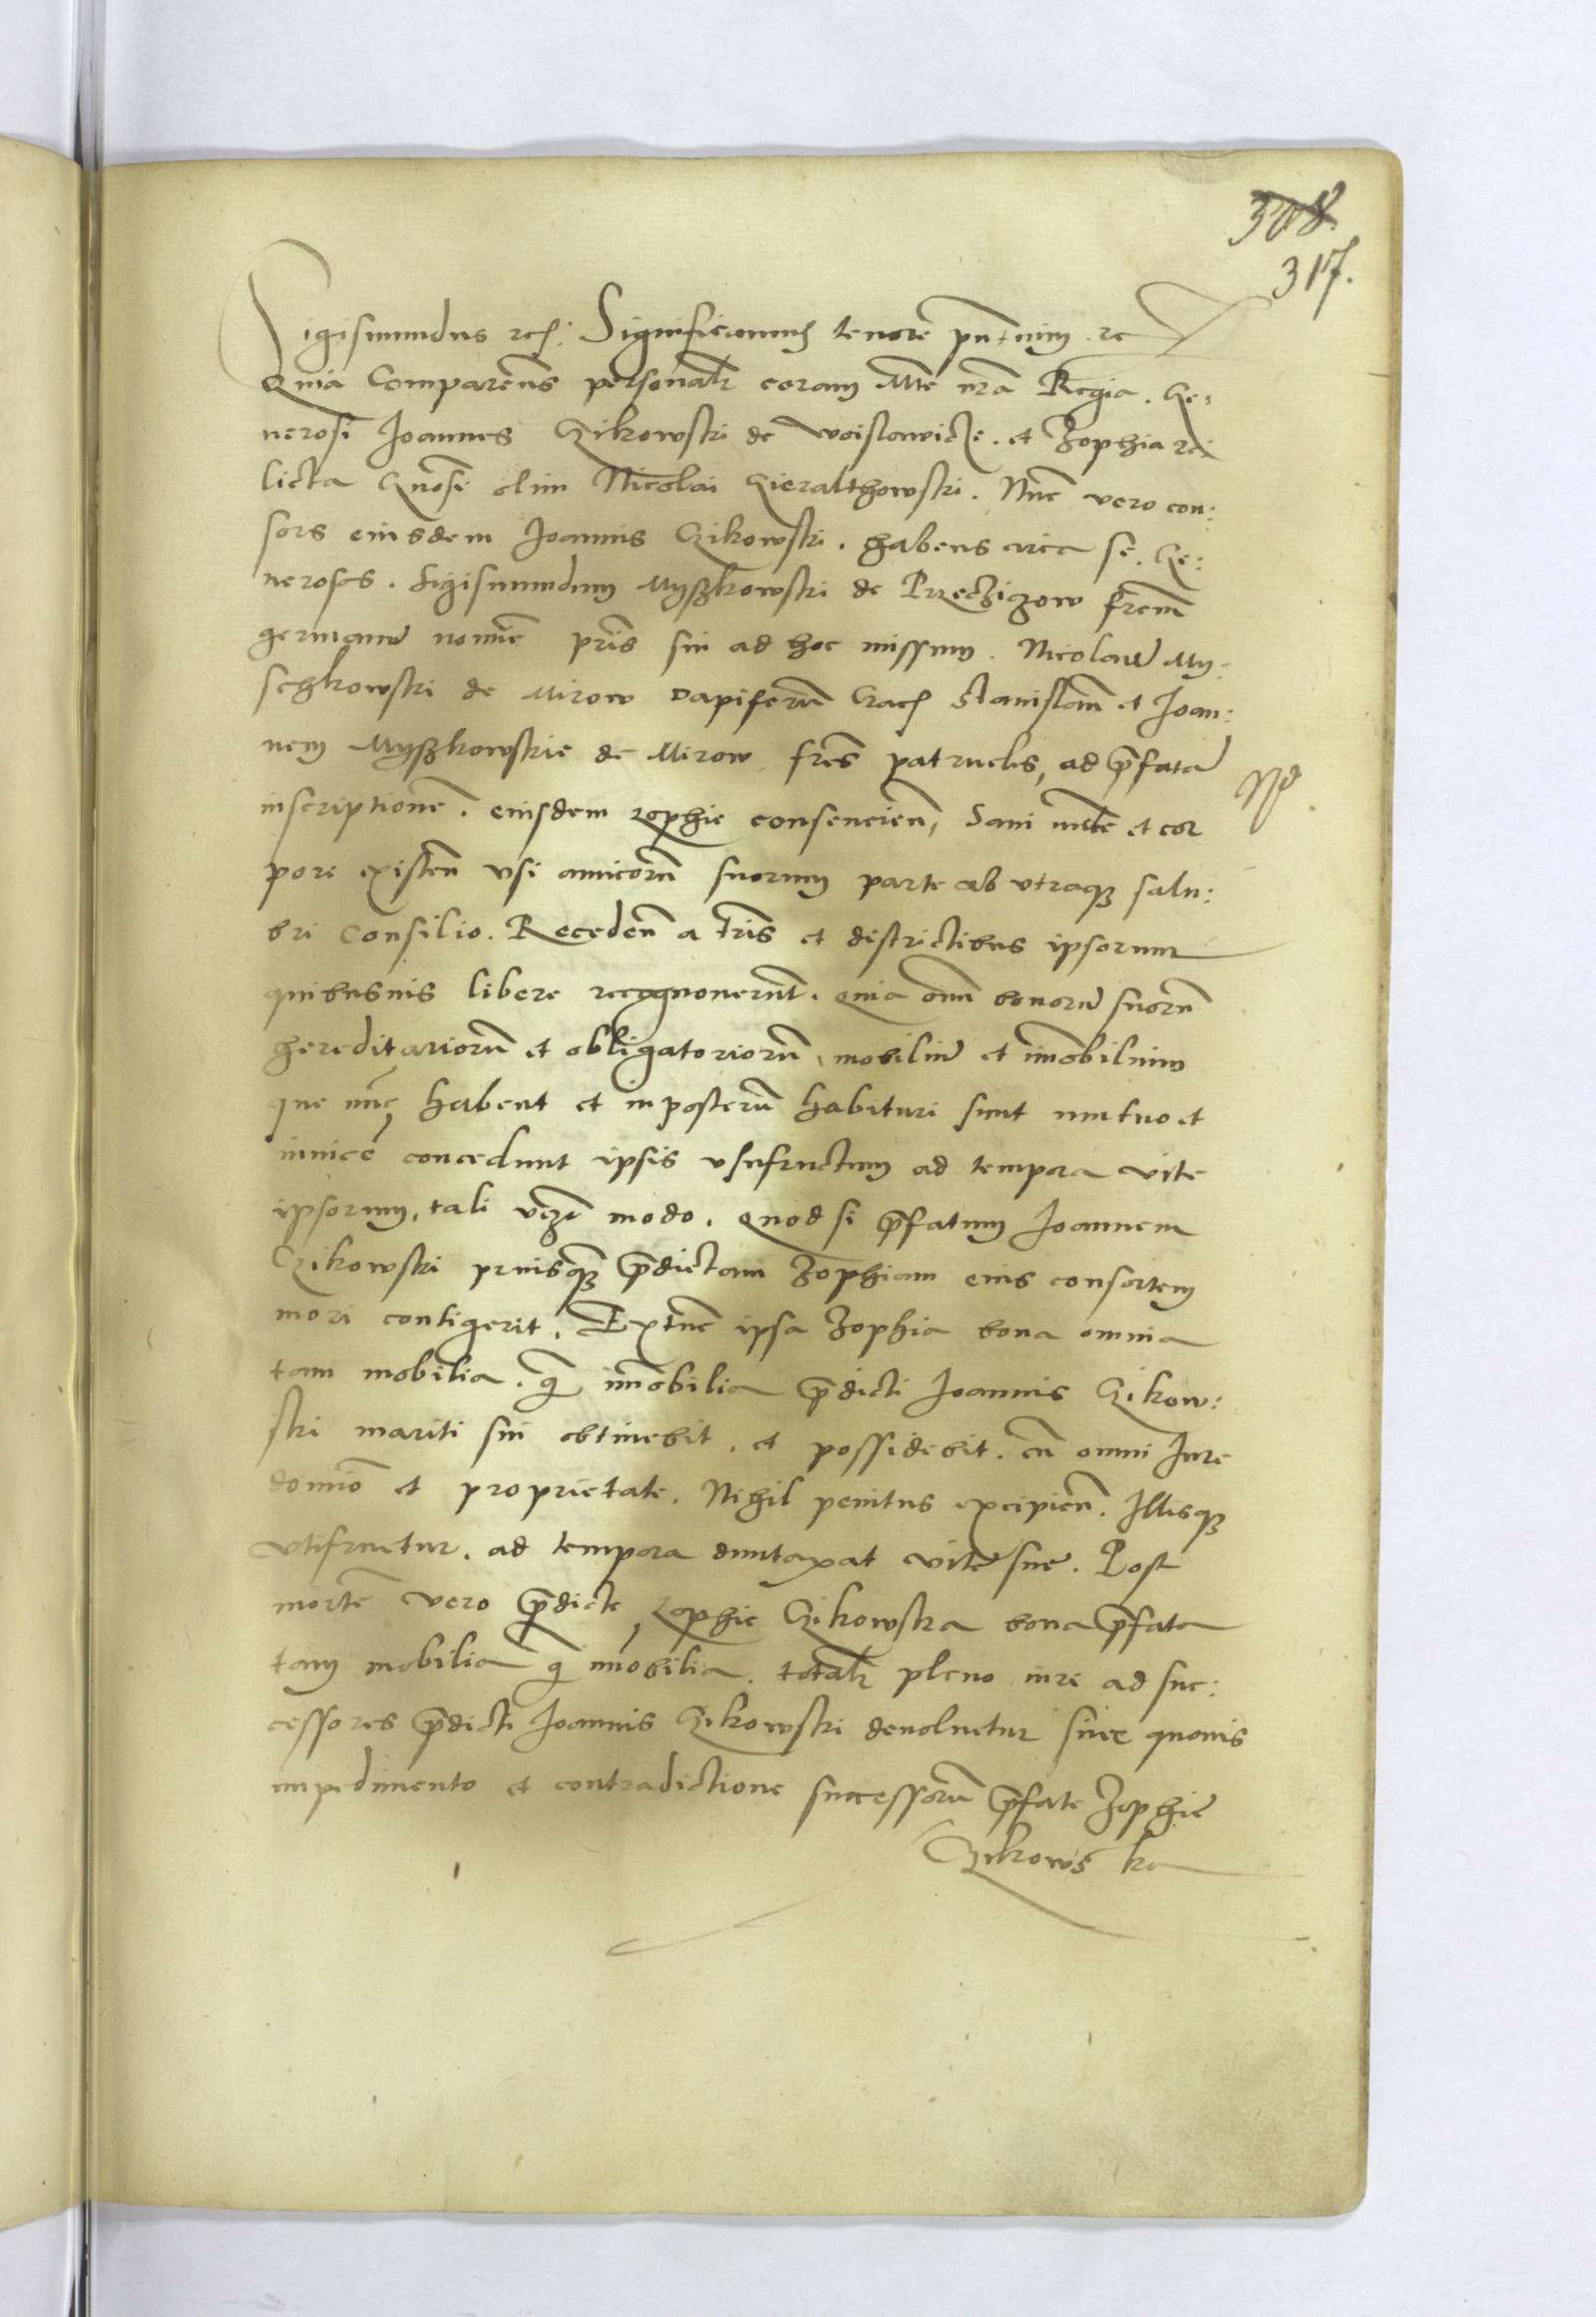 308.
317.
Sigismundus rex: Significamus tenore pntium. rc
Quia Comparens personalr coram Mte nra Regia. Ge:
nerosi Joannes Czikowski de woislawicze. et Zophia re
licta Gnosi olim Nicolai Gieralthowski. Nunc vero con:
sors eiusdem Joannis Czikowski. habens circa se. Ge:
nerosos. Sigismundum Myszkowski de Przecziszow frem
germanu nomine pris sui ad hoc missum. Nicolau My:
schkowski de Mirow dapiferu Crac Stanislaum et Joan:
nem Myszkowskie de Mirow fres patrueles, ad prefata
inscriptione. eiusdem zophie consencien, Sani mente et cor
pore existen vsi amicoru suorum parte ab vtraque salu:
bri Consilio. Receden a tris et districtibus ipsorum
quibusuis libere recognouerunt. quia omni bonoru suoru
hereditarioru et obligatorioru, mobiliu et imobilium
que nunc habent et in posteru habituri sunt mutuo et
inuice concedunt ipsis vsufructum ad tempora vite
ipsorum, tali vezi modo. quod si prefatum Joannem
Czikowski priusquam predictam Zophiam eius consortem
mori contigerit. Extunc ipsa Zophia bona omnia
tam mobilia. q imobilia predicti Joannis Czikow:
ski mariti sui obtinebit, et possidebit. cu omni Jure
domio et proprietate. Nihil penitus excipien. Illisque
vtifruetur. ad tempora duntaxat vite sue. Post
morte vero predicte zophie Czikowska bona prefata
tam mobilia q imobilia. totalr pleno iure ad suc:
cessores predicti Joannis Czikowski deuoluetur sine quouis
impedimento et contradictione successoru prefate Zophie
Czikowska